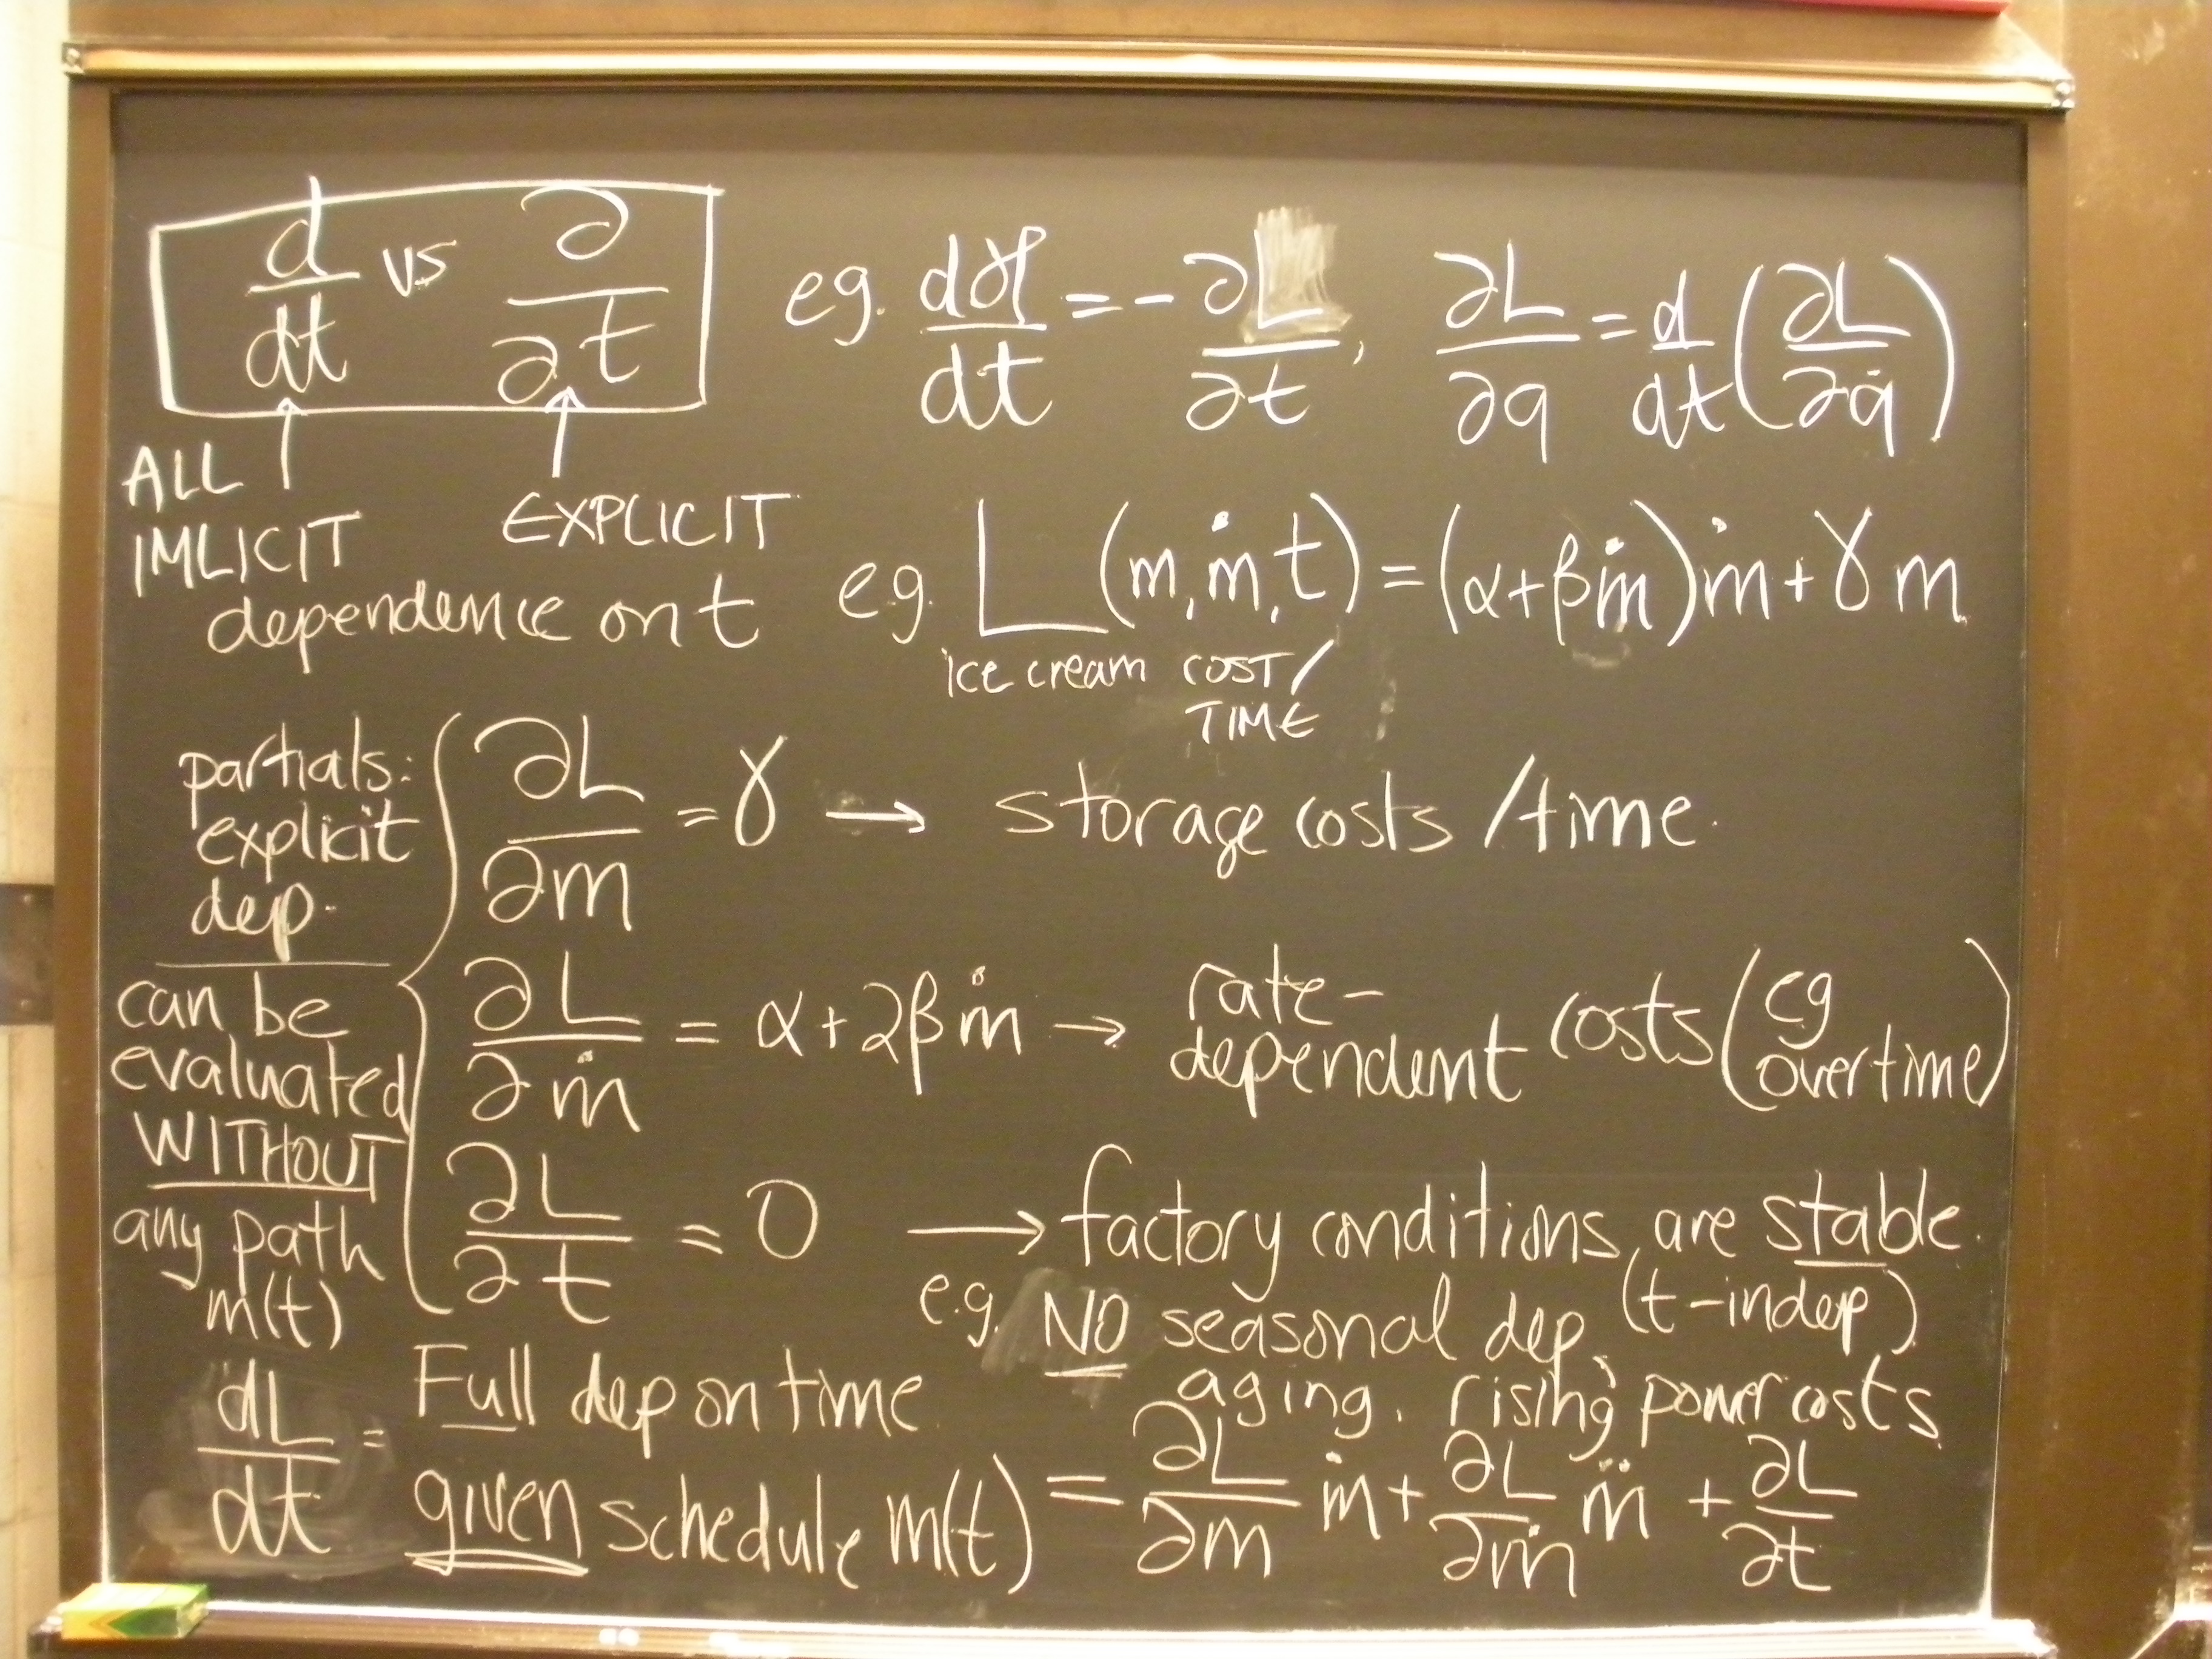 d/dt vs ∂/∂t
eg. dℋ/dt = -∂L/∂t, ∂L/∂q = d/dt(∂L/∂q̇)
ALL
IMLICIT
EXPLICIT
dependence on t
eg. L(m, ṁ, t) = (α+βṁ)ṁ + γm
ice cream COST/
TIME
partials:
explicit
dep.
can be
evaluated
WITHOUT
any path
m(t)
∂L/∂m = γ → storage costs /time.
∂L/∂ṁ = α + 2βṁ → rate-
dependent costs (eg
overtime)
∂L/∂t = 0 → factory conditions are stable.
e.g. NO seasonal dep, (t-indep)
aging, rising power costs
dL/dt = Full dep on time
given schedule m(t) = ∂L/∂m ṁ + ∂L/∂ṁ m̈ + ∂L/∂t